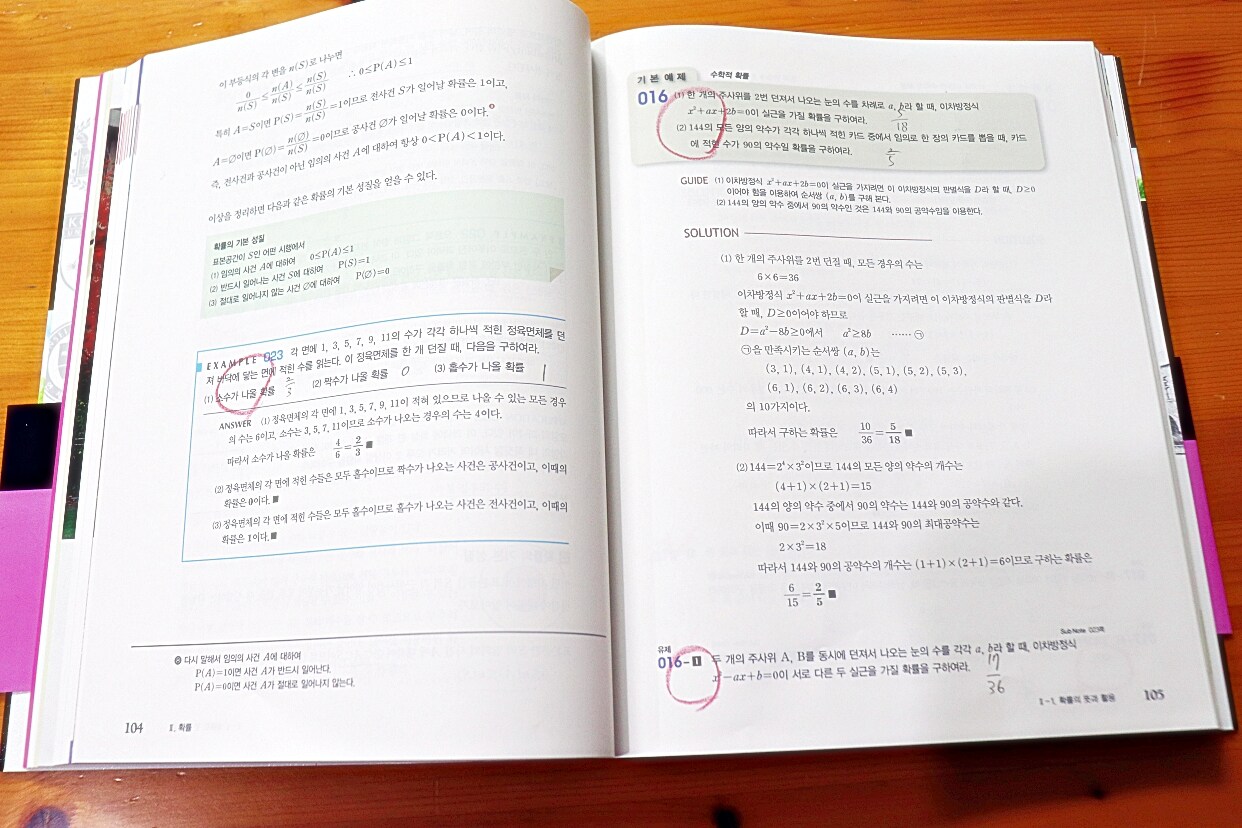 이 부등식의 각 변을 n(S)로 나누면
0/n(S) ≤ n(A)/n(S) ≤ n(S)/n(S) ∴ 0≤P(A)≤1
특히 A=S이면 P(S)=n(S)/n(S)=1이므로 전사건 S가 일어날 확률은 1이고,
A=∅이면 P(∅)=n(∅)/n(S)=0이므로 공사건 ∅가 일어날 확률은 0이다.
즉, 전사건과 공사건이 아닌 임의의 사건 A에 대하여 항상 0<P(A)<1이다.
이상을 정리하면 다음과 같은 확률의 기본 성질을 얻을 수 있다.
확률의 기본 성질
표본공간이 S인 어떤 시행에서
(1) 임의의 사건 A에 대하여 0≤P(A)≤1
(2) 반드시 일어나는 사건 S에 대하여 P(S)=1
(3) 절대로 일어나지 않는 사건 ∅에 대하여 P(∅)=0
EXAMPLE 023 각 면에 1, 3, 5, 7, 9, 11의 수가 각각 하나씩 적힌 정육면체를 던
져 바닥에 닿는 면에 적힌 수를 읽는다. 이 정육면체를 한 개 던질 때, 다음을 구하여라.
(1) 소수가 나올 확률 2/3 (2) 짝수가 나올 확률 0 (3) 홀수가 나올 확률 1
ANSWER (1) 정육면체의 각 면에 1, 3, 5, 7, 9, 11이 적혀 있으므로 나올 수 있는 모든 경우
의 수는 6이고, 소수는 3, 5, 7, 11이므로 소수가 나오는 경우의 수는 4이다.
따라서 소수가 나올 확률은 4/6=2/3 ■
(2) 정육면체의 각 면에 적힌 수들은 모두 홀수이므로 짝수가 나오는 사건은 공사건이고, 이때의
확률은 0이다. ■
(3) 정육면체의 각 면에 적힌 수들은 모두 홀수이므로 홀수가 나오는 사건은 전사건이고, 이때의
확률은 1이다. ■
다시 말해서 임의의 사건 A에 대하여
P(A)=1이면 사건 A가 반드시 일어난다.
P(A)=0이면 사건 A가 절대로 일어나지 않는다.
104 Ⅱ. 확률
기본 예제 수학적 확률
016 (1) 한 개의 주사위를 2번 던져서 나오는 눈의 수를 차례로 a, b라 할 때, 이차방정식
x²+ax+2b=0이 실근을 가질 확률을 구하여라. 5/18
(2) 144의 모든 양의 약수가 각각 하나씩 적힌 카드 중에서 임의로 한 장의 카드를 뽑을 때, 카드
에 적힌 수가 90의 약수일 확률을 구하여라. 2/5
GUIDE (1) 이차방정식 x²+ax+2b=0이 실근을 가지려면 이 이차방정식의 판별식을 D라 할 때, D≥0
이어야 함을 이용하여 순서쌍 (a, b)를 구해 본다.
(2) 144의 양의 약수 중에서 90의 약수인 것은 144와 90의 공약수임을 이용한다.
SOLUTION
(1) 한 개의 주사위를 2번 던질 때, 모든 경우의 수는
6×6=36
이차방정식 x²+ax+2b=0이 실근을 가지려면 이 이차방정식의 판별식을 D라
할 때, D≥0이어야 하므로
D=a²-8b≥0에서 a²≥8b …… ㉠
㉠을 만족시키는 순서쌍 (a, b)는
(3, 1), (4, 1), (4, 2), (5, 1), (5, 2), (5, 3),
(6, 1), (6, 2), (6, 3), (6, 4)
의 10가지이다.
따라서 구하는 확률은 10/36=5/18 ■
(2) 144=2⁴×3²이므로 144의 모든 양의 약수의 개수는
(4+1)×(2+1)=15
144의 양의 약수 중에서 90의 약수는 144와 90의 공약수와 같다.
이때 90=2×3²×5이므로 144와 90의 최대공약수는
2×3²=18
따라서 144와 90의 공약수의 개수는 (1+1)×(2+1)=6이므로 구하는 확률은
6/15=2/5 ■
유제
016-1 두 개의 주사위 A, B를 동시에 던져서 나오는 눈의 수를 각각 a, b라 할 때, 이차방정식
x²-ax+b=0이 서로 다른 두 실근을 가질 확률을 구하여라. 17/36
Ⅱ-1. 확률의 뜻과 활용 105